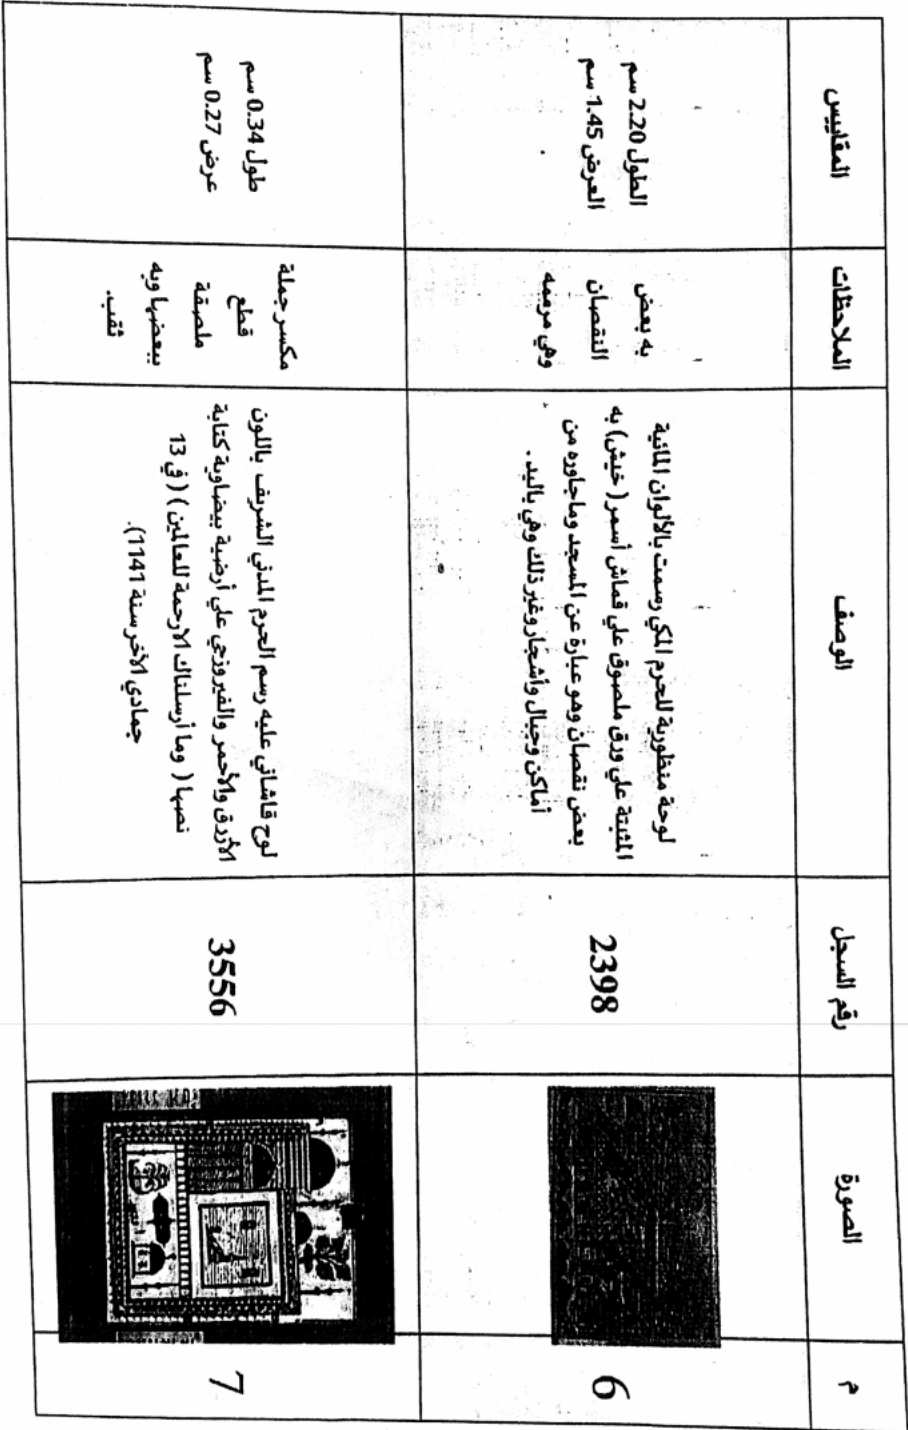 م
الصورة
رقم السجل
الوصف
الملاحظات
المقاييس
6
2398
لوحة منظورية للحرم المكي رسمت بالألوان المائية
المثبتة علي ورق ملصوق علي قماش أسمر ( خيش) به
بعض نقصان وهو عبارة عن المسجد وماجاوره من
أماكن وجبال وأشجار وغير ذلك وهي باليد .
به بعض
النقصان
وهي مرممه
الطول 2.20 سم
العرض 1.45 سم
7
3556
لوح قاشاني عليه رسم الحرم المدني الشريف باللون
الأزرق والأحمر والفيروزي علي أرضية بيضاوية كتابة
نصها ( وما أرسلناك الارحمة للعالمين ) ( في 13
جمادي الأخر سنة 1141).
مكسر جملة
قطع
ملصقة
ببعضها وبه
ثقب.
طول 0.34 سم
عرض 0.27 سم